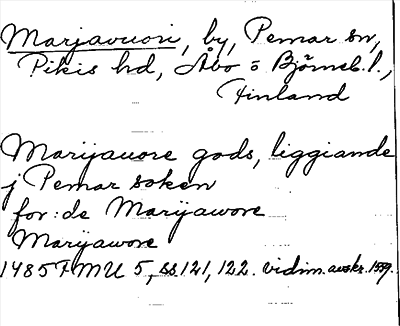 Marjavuori, by, Pemar sn,
Pikis hd, Åbo o Björneb. l.,
Finland
Marijauore gods, liggiande
j Pemar soken
for: de Marÿawore
Marÿawore
1485 FMU 5, ss. 121, 122. vidim. avskr. 1559.